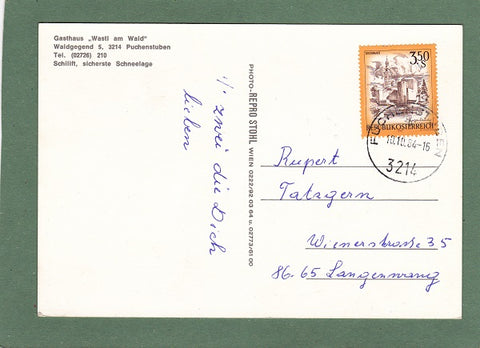 Gasthaus „Wastl am Wald"
Waldgegend 5, 3214 Puchenstuben
Tel. (02726) 210
Schilift, sicherste Schneelage
zwei die Dich
lieben
PHOTO-REPRO STOHL, WIEN 0222/92 03 64 u. 02773-61 00
3.50
REPUBLIK ÖSTERREICH
10.10.84-16
3214
Rupert
Tatzgern
Wienerstrasse 35
86.65 Langenwang